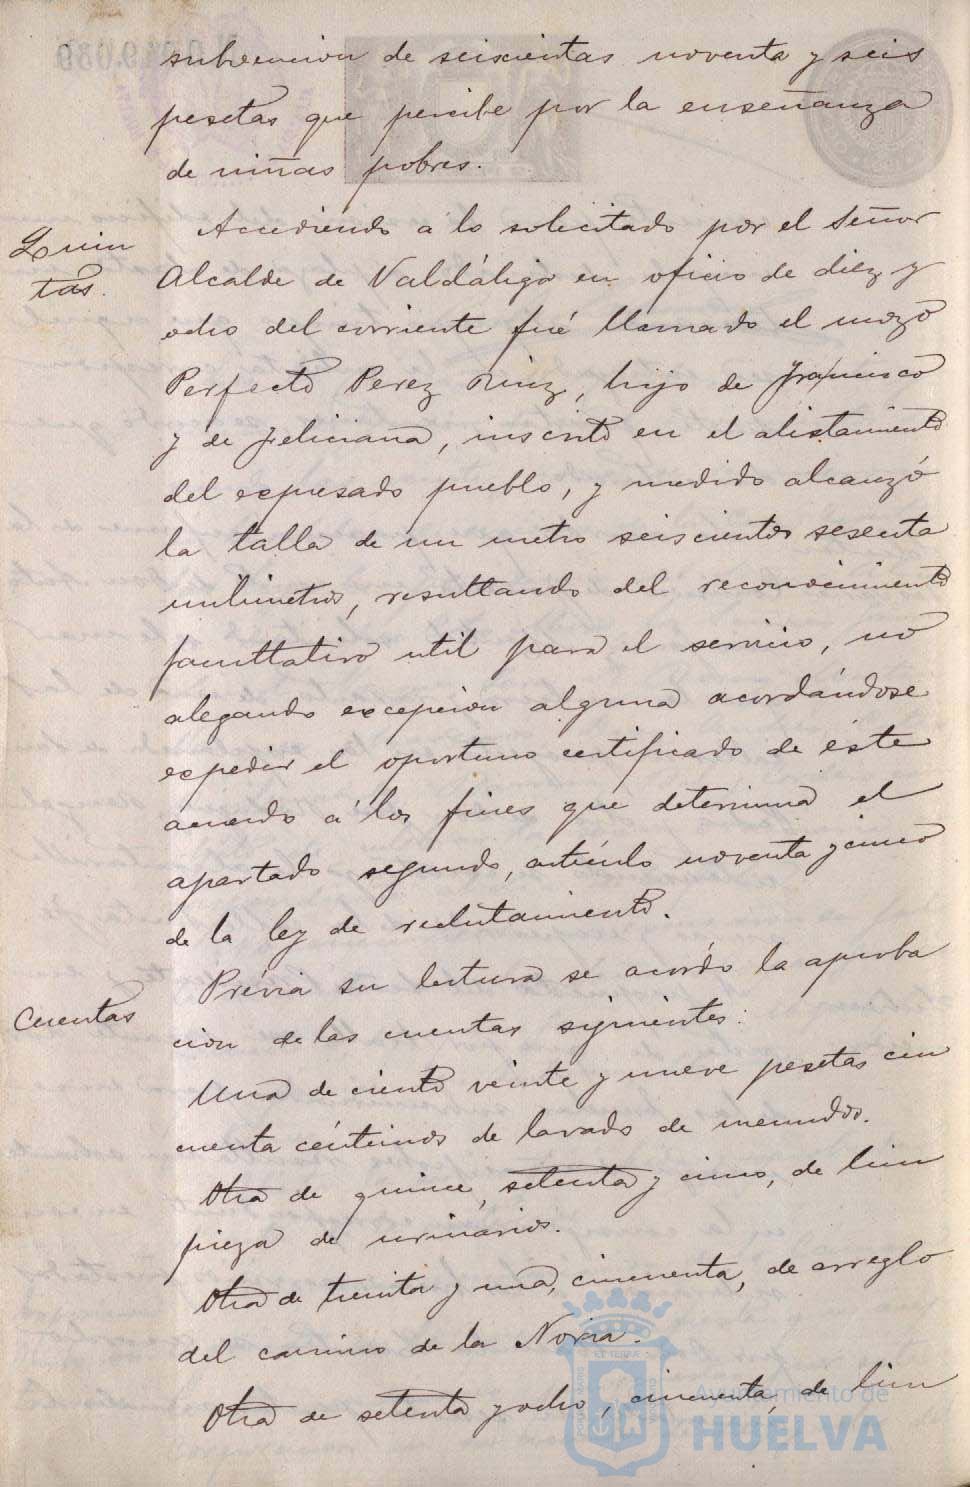 subvencion de seiscientas noventa y seis
pesetas que percibe por la enseñanza
de niñas pobres.
Quin
tas.
Accediendo á lo solicitado por el Señor
Alcalde de Valdáliga en oficio de diez y
ocho del corriente fué llamado el mozo
Perfecto Perez Ruiz, hijo de Francisco
y de Feliciana, inscrito en el alistamiento
del espresado pueblo, y medido alcanzó
la talla de un metro seiscientos sesenta
milimetros, resultando del reconocimiento
facultativo util para el servicio, no
alegando excepcion alguna acordándose
espedir el oportuno certificado de éste
acuerdo á los fines que determina el
apartado segundo, artículo noventa y cinco
de la ley de reclutamiento.
Cuentas
Prévia su lectura se acordó la aproba
cion de las cuentas siguientes:
Una de ciento veinte y nueve pesetas cin
cuenta céntimos de lavado de menudos.
Otra de quince, setenta y cinco, de lim
pieza de urinarios.
Otra de treinta y una, cincuenta, de arreglo
del camino de la Noria.
Otra de setenta y ocho, cincuenta, de lim
Ayuntamiento de
HUELVA